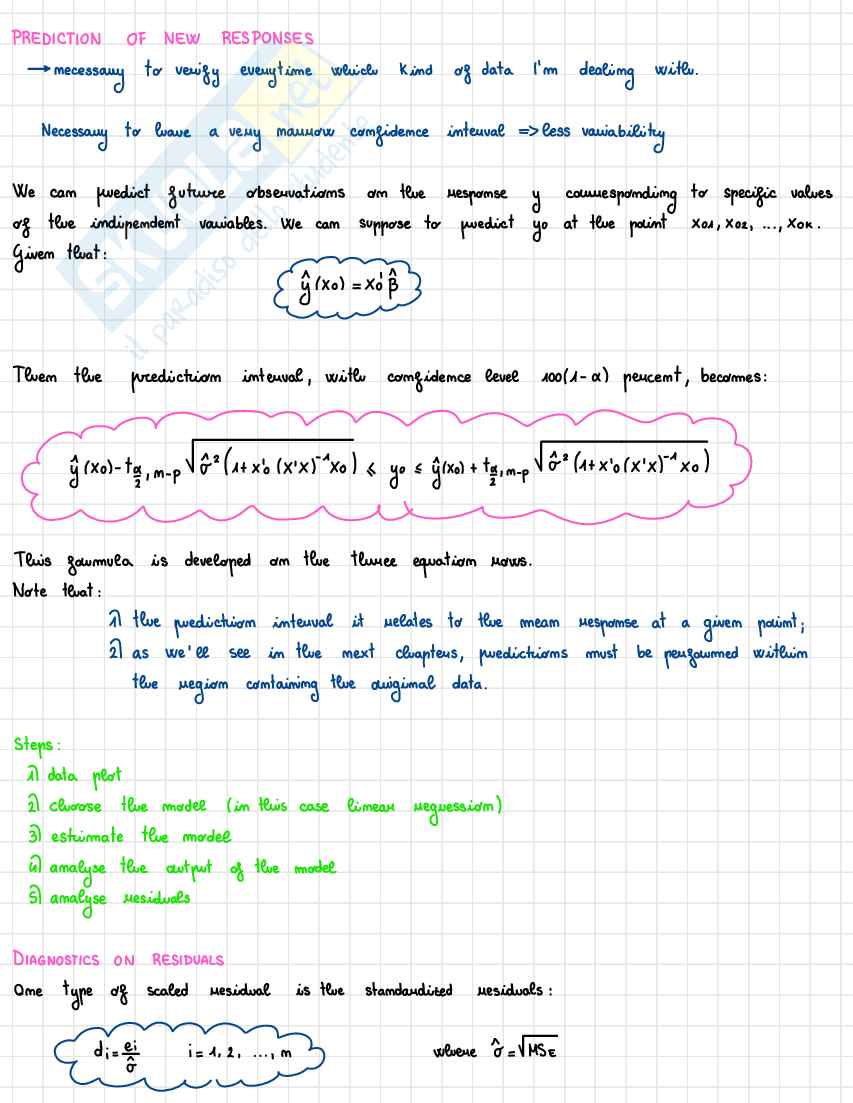 PREDICTION OF NEW RESPONSES
→ necessary to verify everytime which kind of data I'm dealing with.
Necessary to have a very narrow confidence interval => less variability
We can predict future observations on the response y corresponding to specific values
of the indipendent variables. We can suppose to predict y0 at the point x01, x02, ..., x0k.
Given that:
ŷ(x0) = x0' β̂
Then the prediction interval, with confidence level 100(1-α) percent, becomes:
ŷ(x0) - t α/2, n-p √(σ̂² (1 + x'0 (X'X)⁻¹ x0)) ≤ y0 ≤ ŷ(x0) + t α/2, n-p √(σ̂² (1 + x'0 (X'X)⁻¹ x0))
This formula is developed on the three equation rows.
Note that:
1) the prediction interval it relates to the mean response at a given point;
2) as we'll see in the next chapters, predictions must be performed within
the region containing the original data.
Steps:
1) data plot
2) choose the model (in this case linear regression)
3) estimate the model
4) analyse the output of the model
5) analyse residuals
DIAGNOSTICS ON RESIDUALS
One type of scaled residual is the standardized residuals:
di = ei/σ̂ i = 1, 2, ..., n where σ̂ = √MSE
SKUOLA.net
il paradiso dello studente